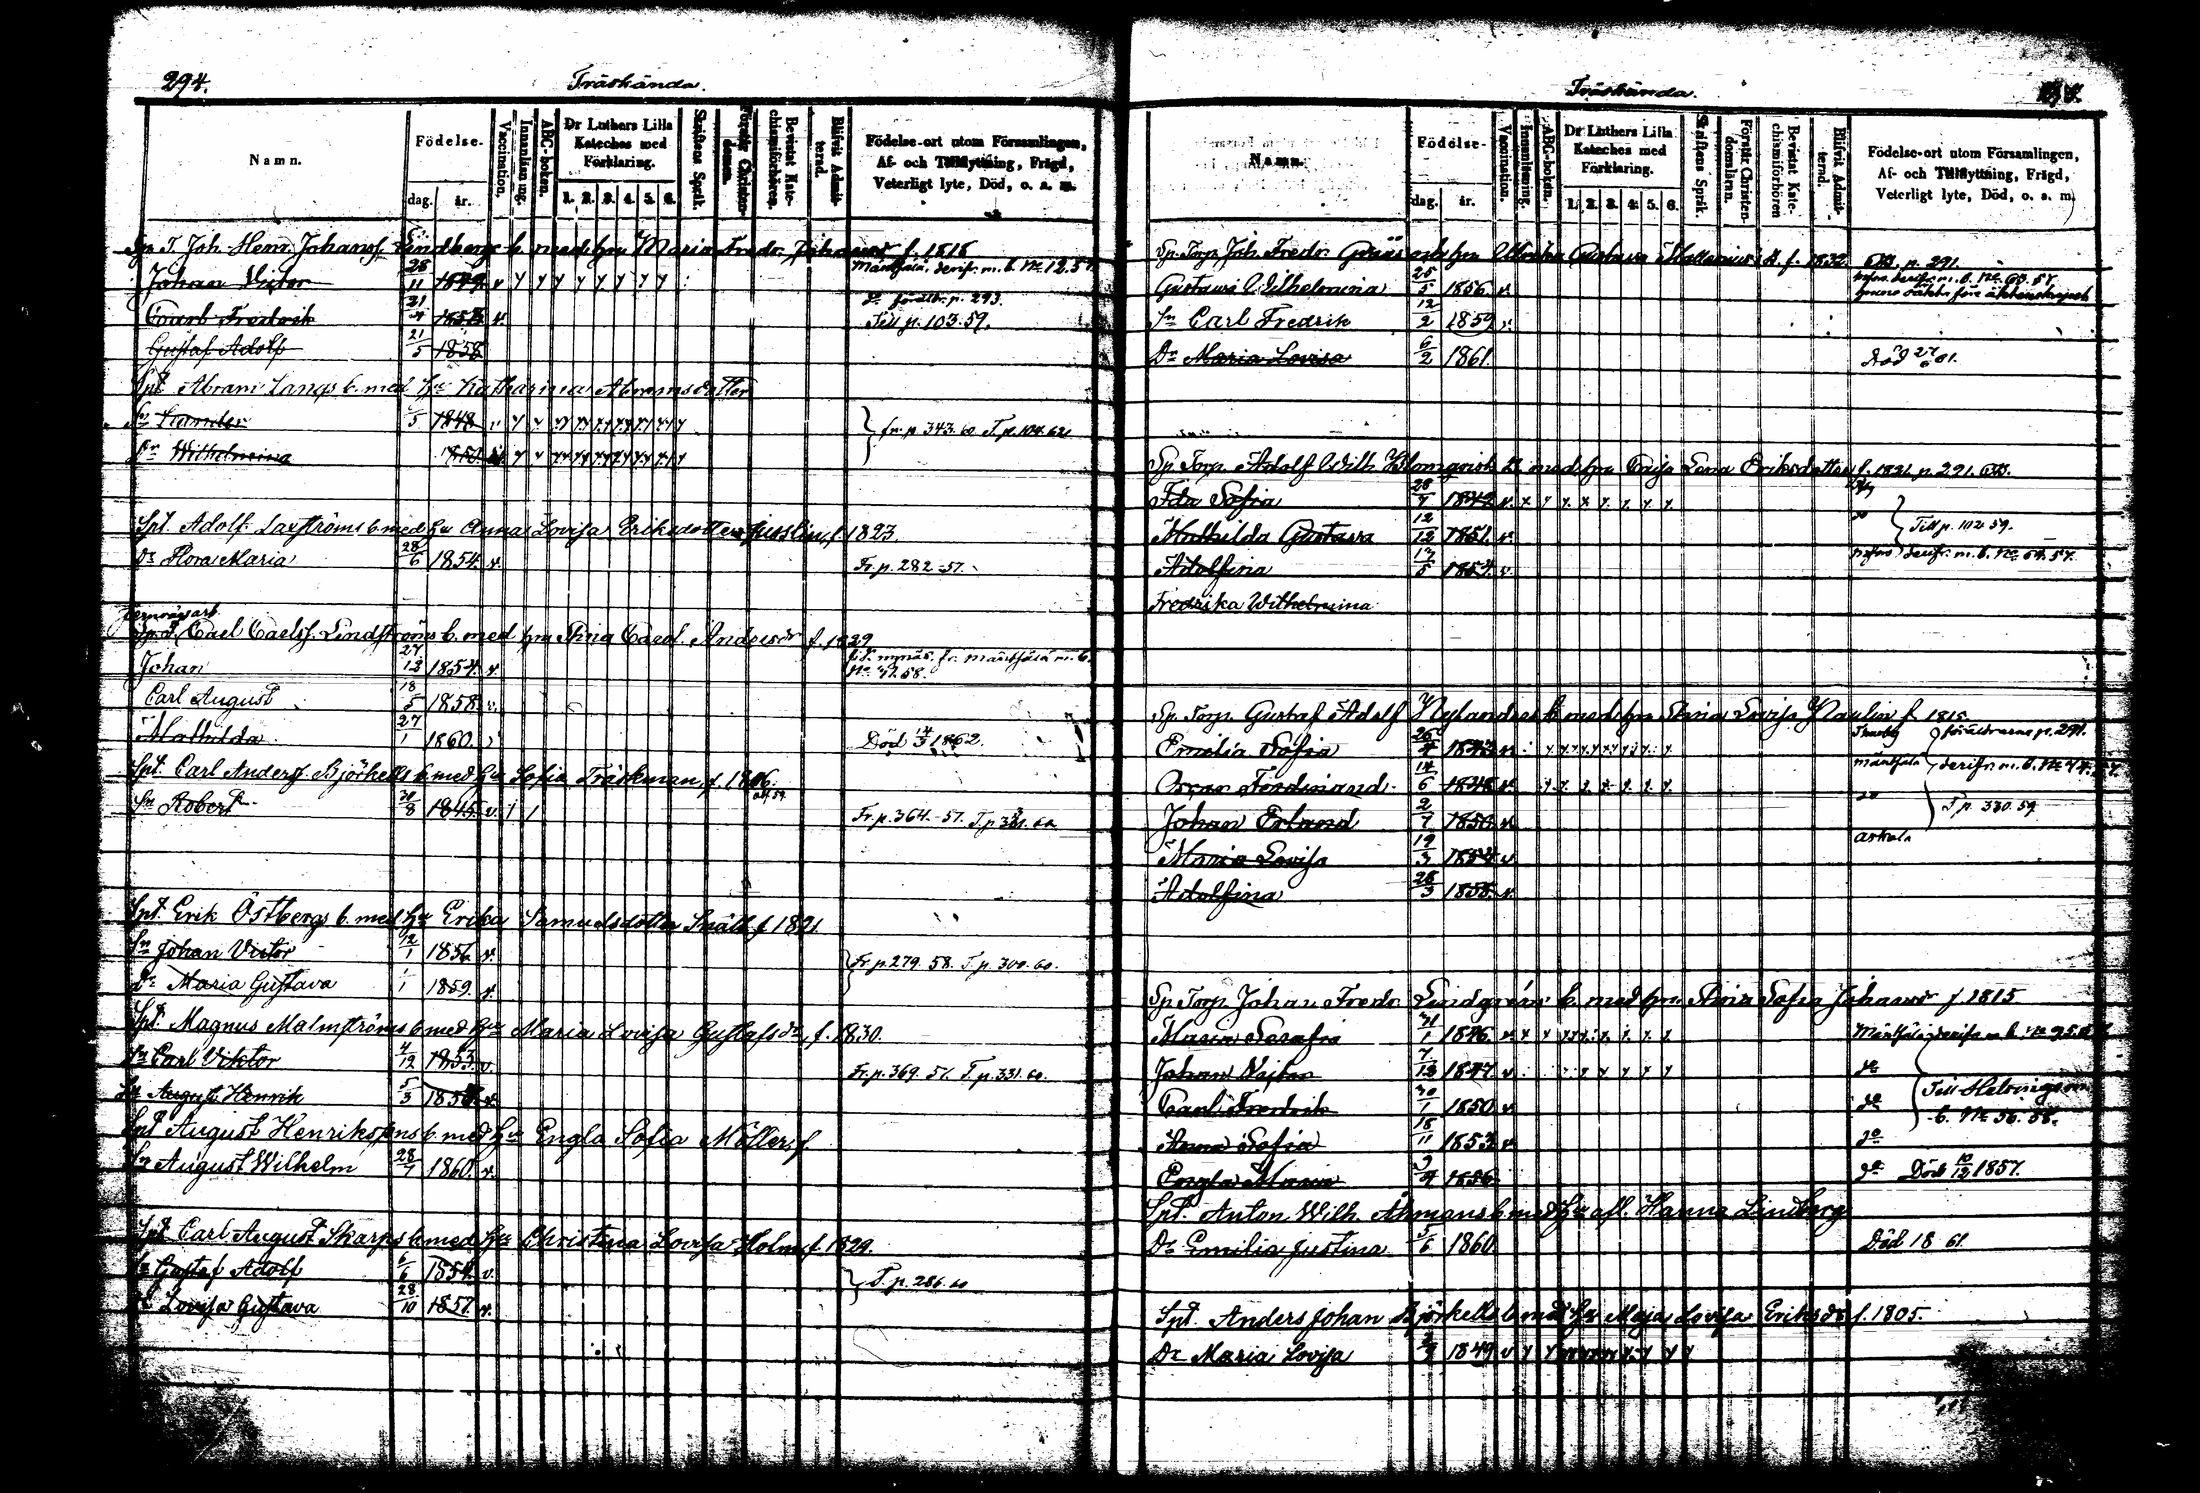 294.
Träskända.
Namn.
Födelse-
dag. år.
Vaccination.
Innanläsning.
ABC-boken.
Dr Luthers Lilla Kateches med Förklaring.
1. 2. 3. 4. 5. 6.
Skriftens Språk.
Förstår Christendomen.
Bevistat Katechismiförhören.
Blifvit Admitterad.
Födelse-ort utom Församlingen, Af- och Tillflyttning, Frägd, Veterligt lyte, Död, o. s. m.
Sp. T. Joh. Henr. Johanss. Lindbergs b. med hu Maria Fredr. f. 1818
Johan Victor 28/11 1849 v Mäntsälä, derifr. m. b. No 12.57.
Fredrik v. do föräldr. p. 293.
Gustaf Adolf 21/5 1858 Till p. 103.59.
Spt Abram Långs b. med hu Katharina Abramsdotter
Sn 1848 fr. p. 343. 60. T. p. 104. 62
Dr Wilhelmina 1850
Spt. Adolf Laxströms b med hu Anna Lovisa Eriksdotter f 1823.
Dr Flora Maria 28/6 1854 v. Fr. p. 282-57.
Sp. T. Carl Carlss. Lindströms b. med hu Stina Carol. Andersdr f. 1829
Johan 27/12 1854 v. fr. Mäntsälä m. b. No 47.58.
Carl August 18/5 1858 v.
Mathilda 27/1 1860. Död 14/3 1862.
Spt. Carl Anderss Björkells b med hu Sofia Träskman f. 1806.
Sn Robert 30/8 1845 v. Fr. p. 364-57. T. p. 331. 60
Spt. Erik Östbergs b. med hu Erika Samuelsdotter Snäll f 1821.
Sn Johan Victor 12/1 1856 v. Fr. p. 279. 58. T. p. 300. 60.
Dr Maria Gustava 1/1 1859. v.
Spt. Magnus Malmströms b med hu Maria Lovisa Gustafsdr, f. 1830.
Sn Carl Viktor 4/12 1853 v. Fr. p. 369. 57. T. p. 331. 60.
Sn August Henrik 5/3 v.
Spt August Henrikssons b. med hu Engla Sofia Möller f
Sn August Wilhelm 28/7 1860. v.
Spt Carl August Skarps b med hu Christina Lovisa Holm f. 1829.
Sn Gustaf Adolf 6/6 1854 v. T. p. 286. 60
Dr Lovisa Gustava 28/10 1857. v.
Träskända.
Namn.
Födelse-
dag. år.
Vaccination.
Innanläsning.
ABC-boken.
Dr Luthers Lilla Kateches med Förklaring.
1. 2. 3. 4. 5. 6.
Skriftens Språk.
Förstår Christendomsläran.
Bevistat Katechismiförhören
Blifvit Admitterad.
Födelse-ort utom Församlingen, Af- och Tillflyttning, Frägd, Veterligt lyte, Död, o. s. m.
Sp. Torp. Joh. Fredr. Gustava f. 1832. p. 291.
Gustava Wilhelmina 25/5 1856. v. m. b. No 63. 57.
Sn Carl Fredrik 12/2 1859 v.
Dr Maria Lovisa 6/2 1861. Död
Sp Torp. Adolf Wilh Blomqvist b. med hu Caisa Lena Eriksdotter f. 1821. p. 291.
Ida Sofia 28/7 v.
Mathilda Gustava 12/12 1851. v. do Till p. 102. 59.
Adolfina 17/5 1854 v. derifr. m. b. No 64. 57.
Fredrika Wilhelmina
Sp. Torp. Gustaf Adolf Nylanders b med hu Stina Lovisa f 1815.
Emilia Sofia 26/4 v Tusby föräldrarne p. 291.
Oscar Ferdinand 14/6 1848 v Mäntsälä derifr. m. b.
Johan Erland 2/7 1850 v do T. p. 330. 59
Maria Lovisa 19/3 1854 v Askola
Adolfina 28/3 1858. v.
Sp Torp Johan Fredr Lindgréns b. med hu Stina Sofia Johansdr f 1815
Maria Serafia 31/1 1846. v Mäntsälä derifr. m. b.
Johan Victor 7/12 1847 v. do Till Helsinge m.
Carl Fredrik 30/1 1850 v do b. No 56. 58.
Anna Sofia 18/11 1853 v do
Engla Maria 1856 do Död 10/12 1857.
Spt. Anton Wilh. Åhmans b med hu afl. Hanna Lindberg
Dr Emilia Justina 5/6 1860 Död 18 61.
Spt. Anders Johan Björkells b med hu Maja Lovisa Eriksdr f. 1805.
Dr Maria Lovisa 1849 v